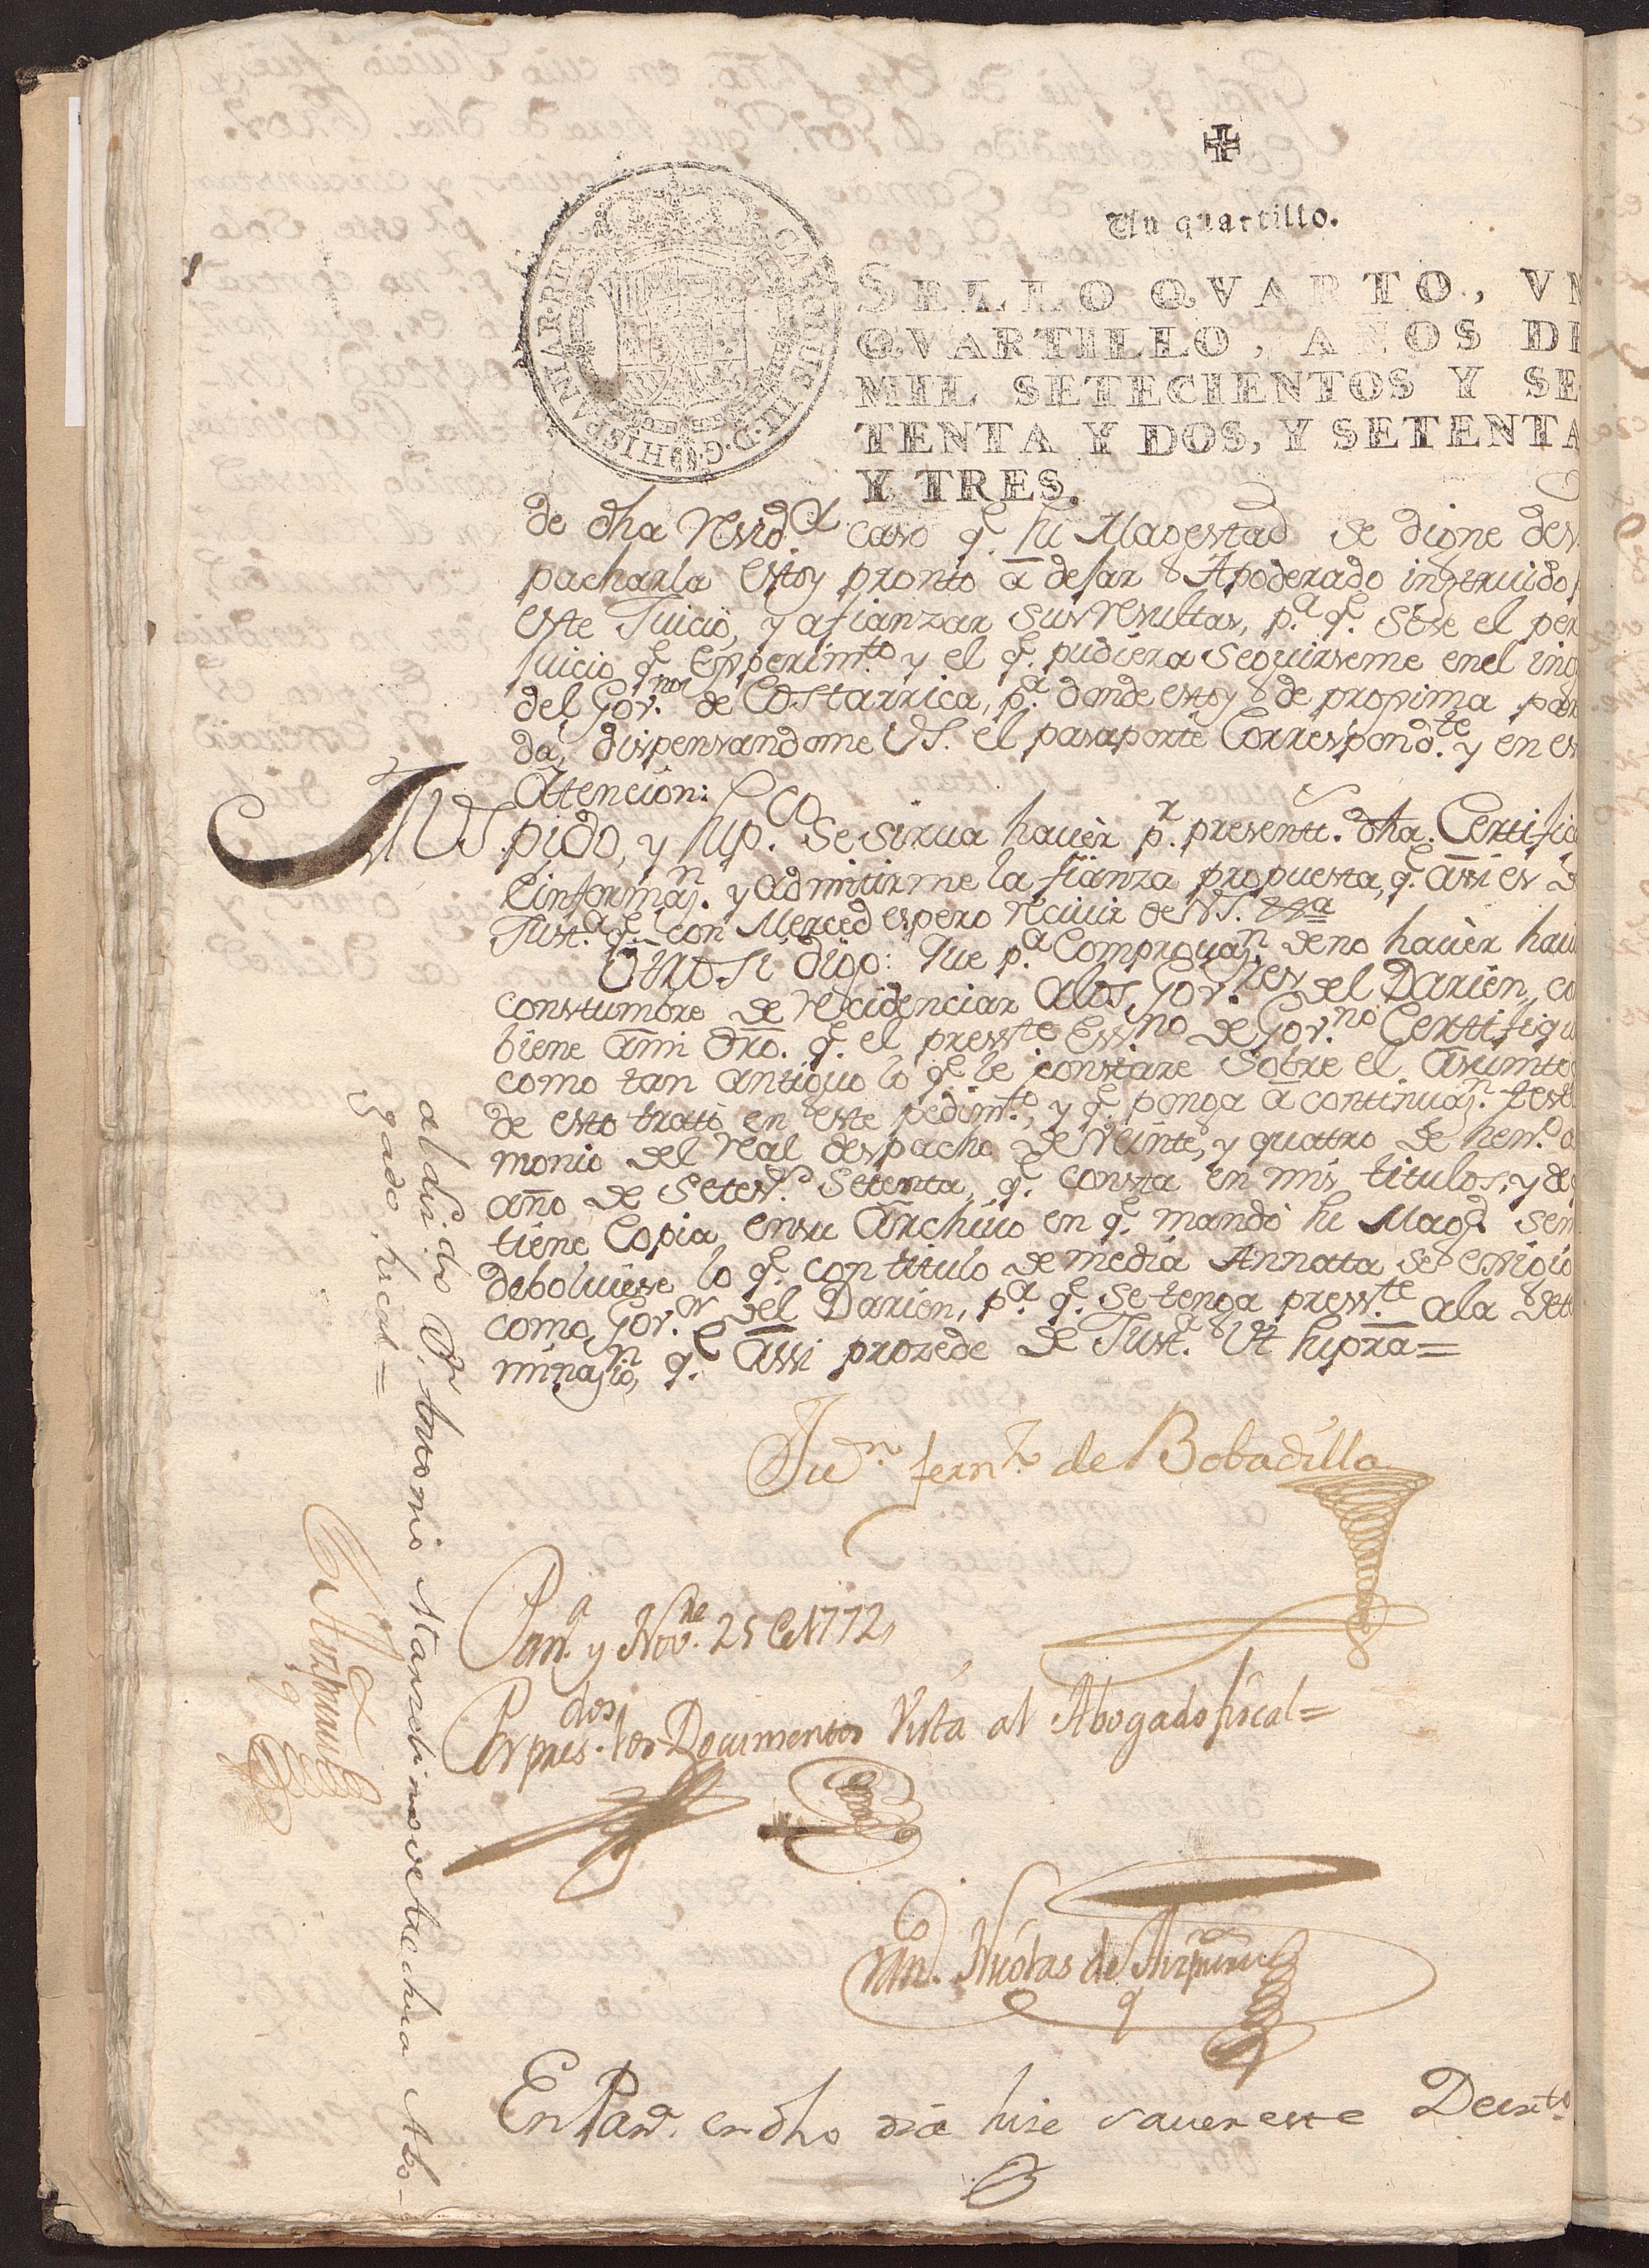 Un quartillo.
CAROLUS III. D. G. HISPANIAR. REX
SELLO QVARTO, VN
QVARTILLO, AÑOS DE
MIL SETECIENTOS Y SE
TENTA Y DOS, Y SETENTA
Y TRES.
de dha Resid.ª caso q.e su Magestad se digne des
pacharla estoy pronto â dejar Apoderado instruido
este Juicio, y afianzar sus resultas, p.ª q.e sese el per
juicio q.e experim.to y el q.e pudiera seguirseme en el ing
del Gov.no de Costarrica, p.ª donde estoy de proxima par
da, dispensandome VS. el pasaporte Correspond.te y en es
Attencion:
AVS. pido, y sup.co se sirva havèr p.r present.s dha Certific
è informaz.n y admitirme la fianza propuesta, q.e assi es de
Just.ª q.e con Merced espero recivir de VS. &.ª
Otro si digo: Que p.ª Comprovaz.n de no havèr havi
constumbre de recidenciar alos Gov.res del Darien, co
biene âmi dro. q.e el press.te Ess.no de Gov.no Certifiqu
como tan antiguo lo q.e le constare sobre el asumto
de esto trato en este pedim.to, y q.e ponga â continuaz.n testi
monio del real despacho de Veinte, y quattro de hen.o d
año de Setes.s Setenta, q.e consta en mis titulos, y de
tiene Copia en su Archivo en q.e mandò su Mag.d sem
debolviese lo q.e con titulo de media Annatta se exigio
como Gov.or del Darien, p.ª q.e se tenga press.te ala dete
minaz.n, q.e assi prozede de Just.ª Vt supra=
Ju.n fern.z de Bobadilla
Pan.a y Nov.re 25 de 1772,
Por pres.dos los Documentos Vista al Abogado fiscal=
Nicolas de
En Pan.a en dho dia hise saver este Decret.o
al du.r dn Antonio Marzelino de Arechua Abo-
gado fiscal=